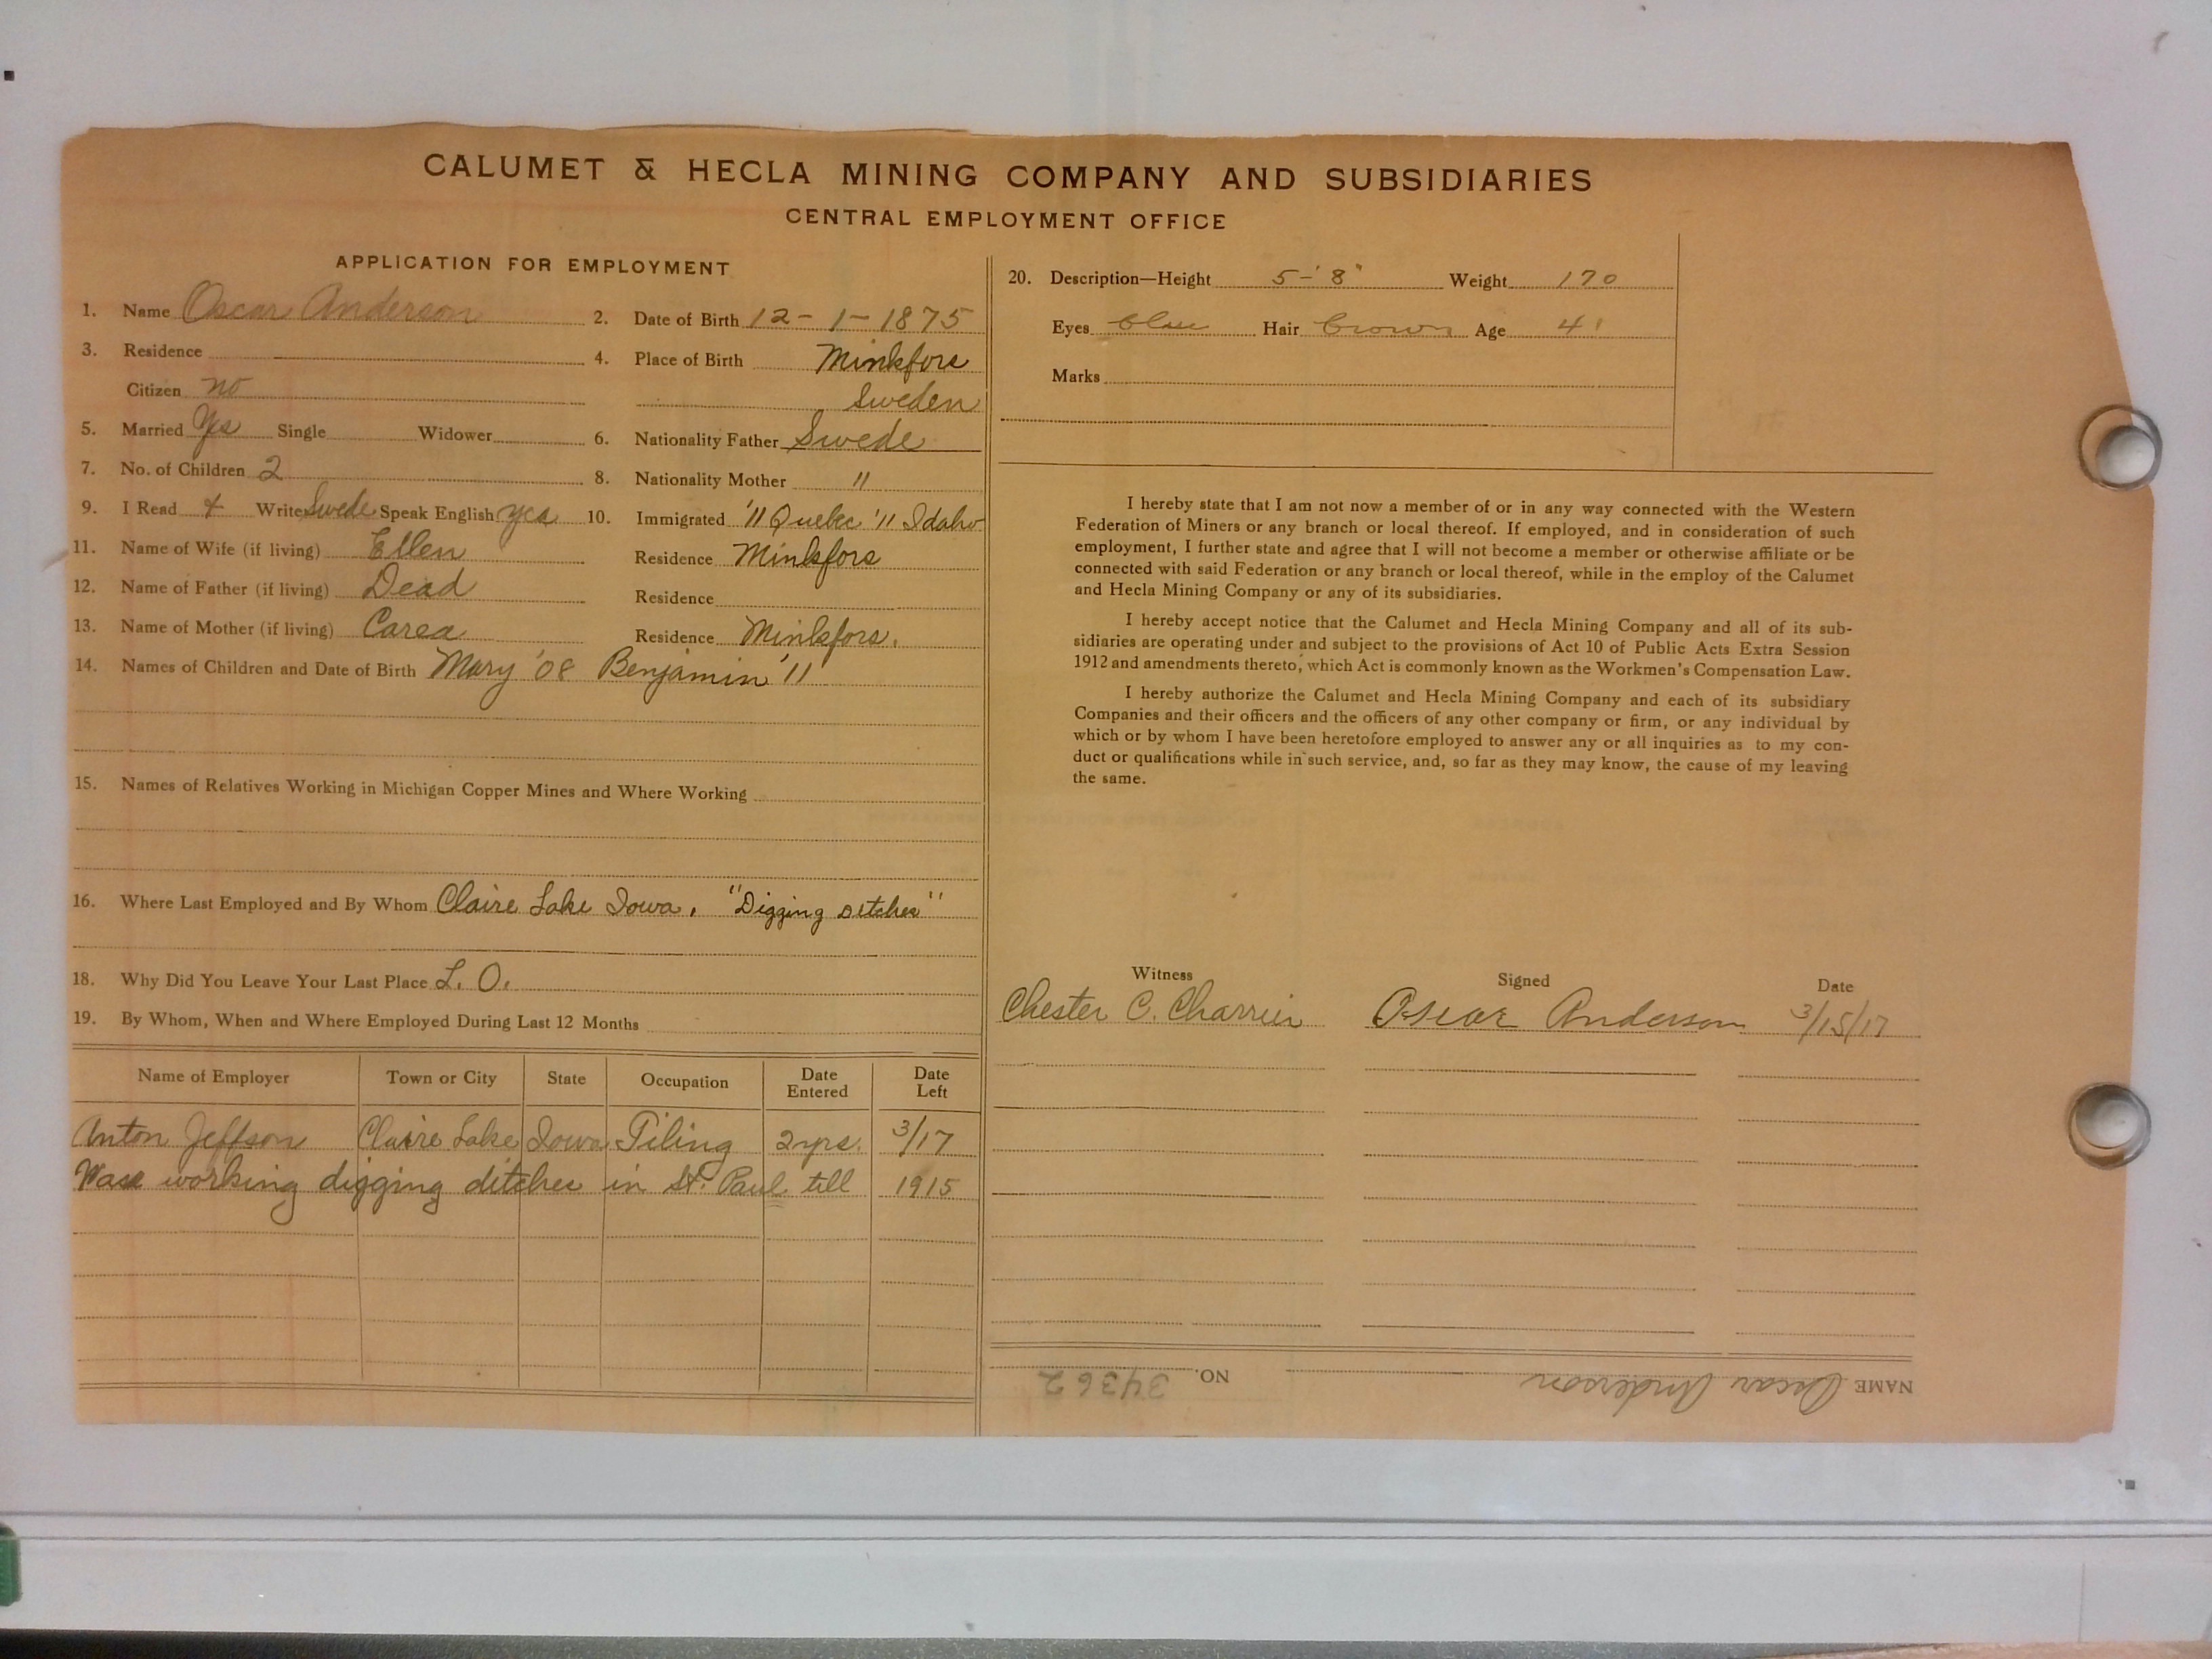 CALUMET & HECLA MINING COMPANY AND SUBSIDIARIES
CENTRAL EMPLOYMENT OFFICE
APPLICATION FOR EMPLOYMENT
1. Name Oscar Anderson 2. Date of Birth 12-1-1875
3. Residence 4. Place of Birth Minkfors
Citizen no Sweden
5. Married Yes Single Widower 6. Nationality Father Swede
7. No. of Children 2 8. Nationality Mother "
9. I Read & Write Swede Speak English yes 10. Immigrated '11 Quebec '11 Idaho
11. Name of Wife (if living) Ellen Residence Minkfors
12. Name of Father (if living) Dead Residence
13. Name of Mother (if living) Carea Residence Minkfors.
14. Names of Children and Date of Birth Mary '08 Benjamin '11
15. Names of Relatives Working in Michigan Copper Mines and Where Working
16. Where Last Employed and By Whom Claire Lake Iowa. "Digging ditches"
18. Why Did You Leave Your Last Place L. O.
19. By Whom, When and Where Employed During Last 12 Months
Name of Employer Town or City State Occupation Date Entered Date Left
Anton Jeffson Claire Lake Iowa Tiling 2 yrs. 3/17
Was working digging ditches in St. Paul till 1915
20. Description—Height 5-'8" Weight 170
Eyes blue Hair brown Age 41
Marks
I hereby state that I am not now a member of or in any way connected with the Western
Federation of Miners or any branch or local thereof. If employed, and in consideration of such
employment, I further state and agree that I will not become a member or otherwise affiliate or be
connected with said Federation or any branch or local thereof, while in the employ of the Calumet
and Hecla Mining Company or any of its subsidiaries.
I hereby accept notice that the Calumet and Hecla Mining Company and all of its sub-
sidiaries are operating under and subject to the provisions of Act 10 of Public Acts Extra Session
1912 and amendments thereto, which Act is commonly known as the Workmen's Compensation Law.
I hereby authorize the Calumet and Hecla Mining Company and each of its subsidiary
Companies and their officers and the officers of any other company or firm, or any individual by
which or by whom I have been heretofore employed to answer any or all inquiries as to my con-
duct or qualifications while in such service, and, so far as they may know, the cause of my leaving
the same.
Witness Signed Date
Chester C. Charrier Oscar Anderson 3/15/17
NAME Oscar Anderson NO. 34362